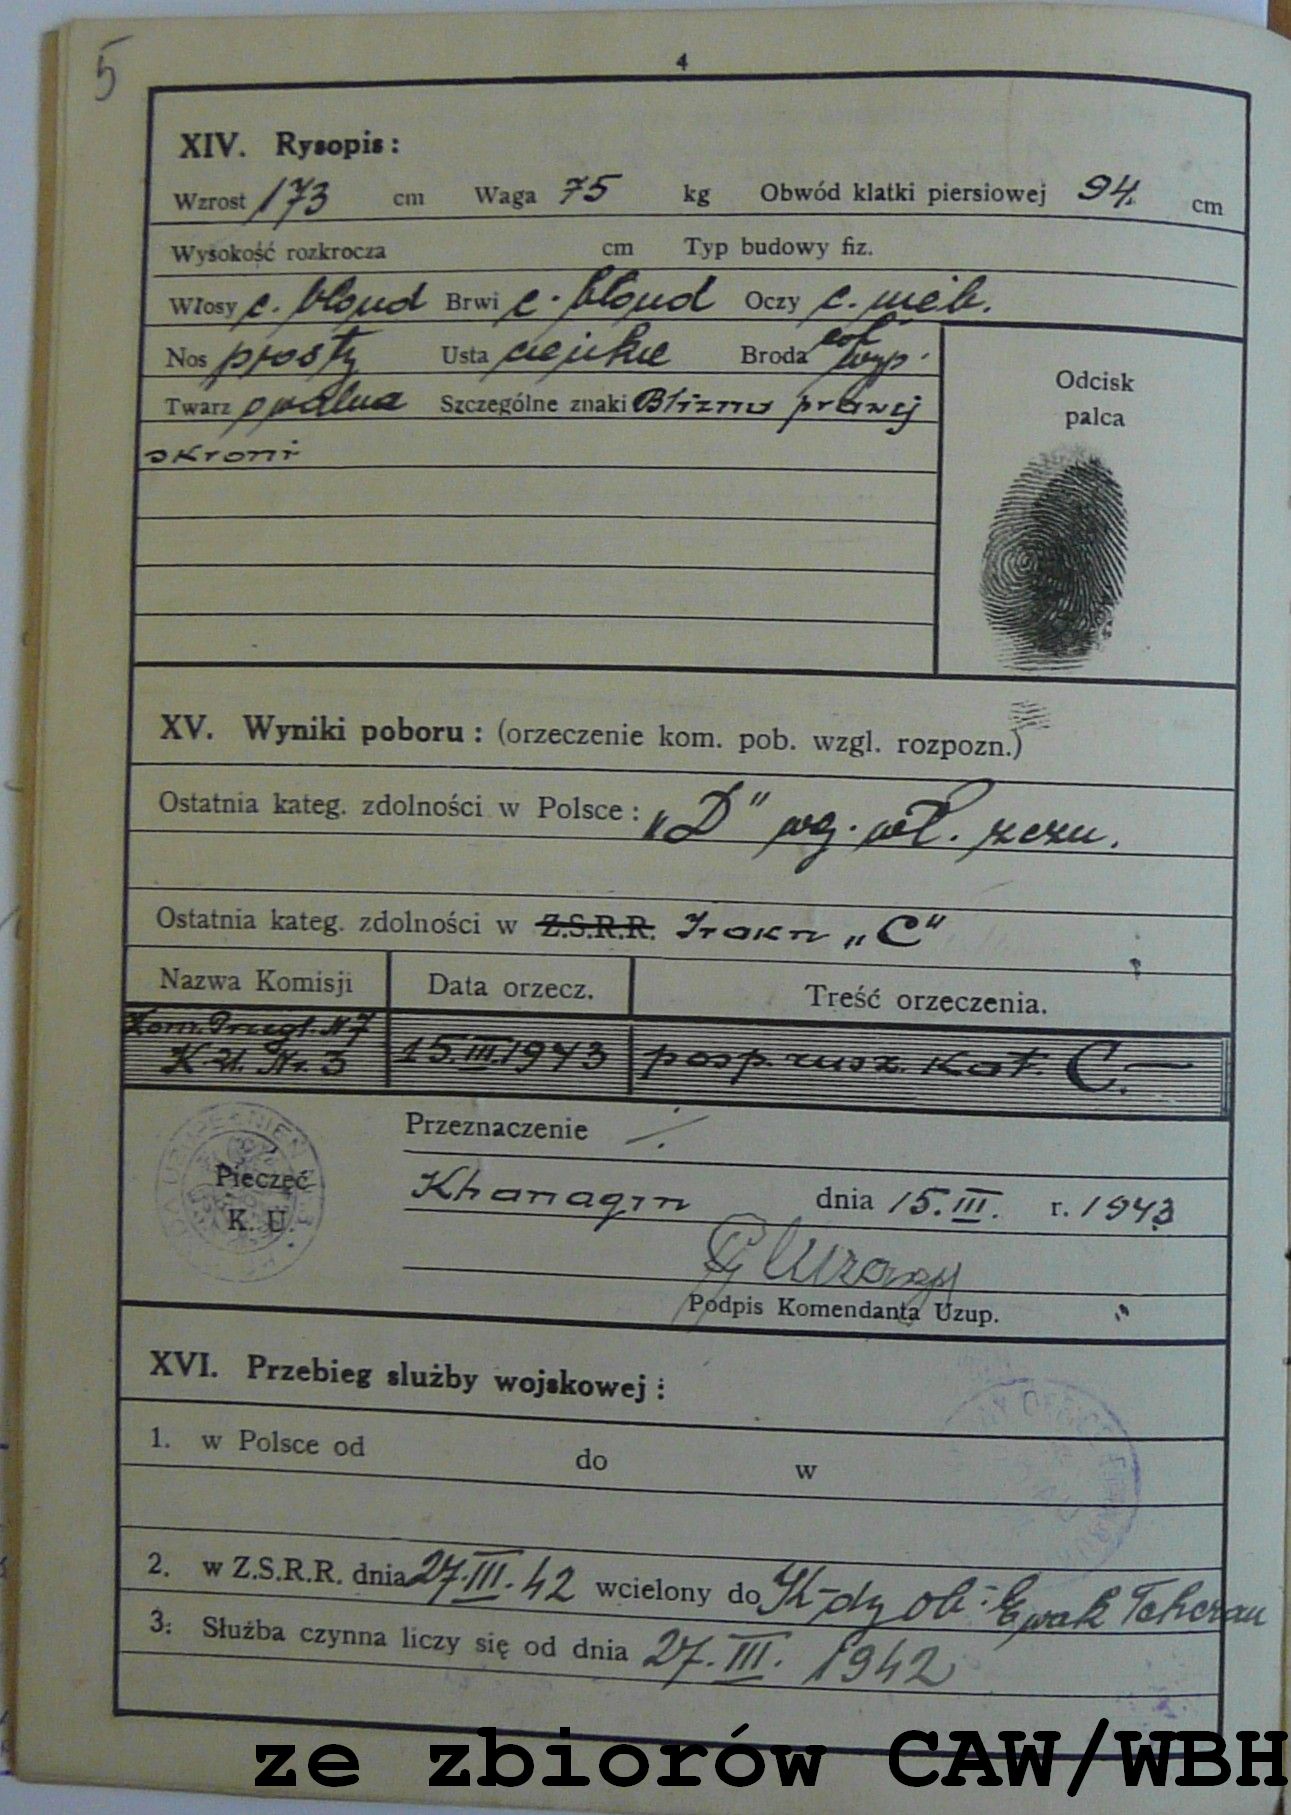 5
4
XIV. Rysopis:
Wzrost 173 cm Waga 75 kg Obwód klatki piersiowej 94. cm
Wysokość rozkrocza cm Typ budowy fiz.
Włosy c. blond Brwi c. blond Oczy c. nieb.
Nos prosty Usta cienkie Broda
Twarz owalna Szczególne znaki Blizna prawej
skroni
Odcisk
palca
XV. Wyniki poboru: (orzeczenie kom. pob. wzgl. rozpozn.)
Ostatnia kateg. zdolności w Polsce: „D" wg. wł. zezn.
Ostatnia kateg. zdolności w Z.S.R.R. Iraku „C"
Nazwa Komisji Data orzecz. Treść orzeczenia.
Kom. Przegl. N 7
K. U. Nr. 3 15.III.1943 posp. rusz. kat. C.—
Przeznaczenie ./.
Pieczęć
K. U.
Khanaqin dnia 15.III. r. 1943
Podpis Komendanta Uzup.
XVI. Przebieg służby wojskowej:
1. w Polsce od do w
2. w Z.S.R.R. dnia 27.III.42 wcielony do K-dy ob. Ewak Teheran
3. Służba czynna liczy się od dnia 27.III.1942
ze zbiorów CAW/WBH